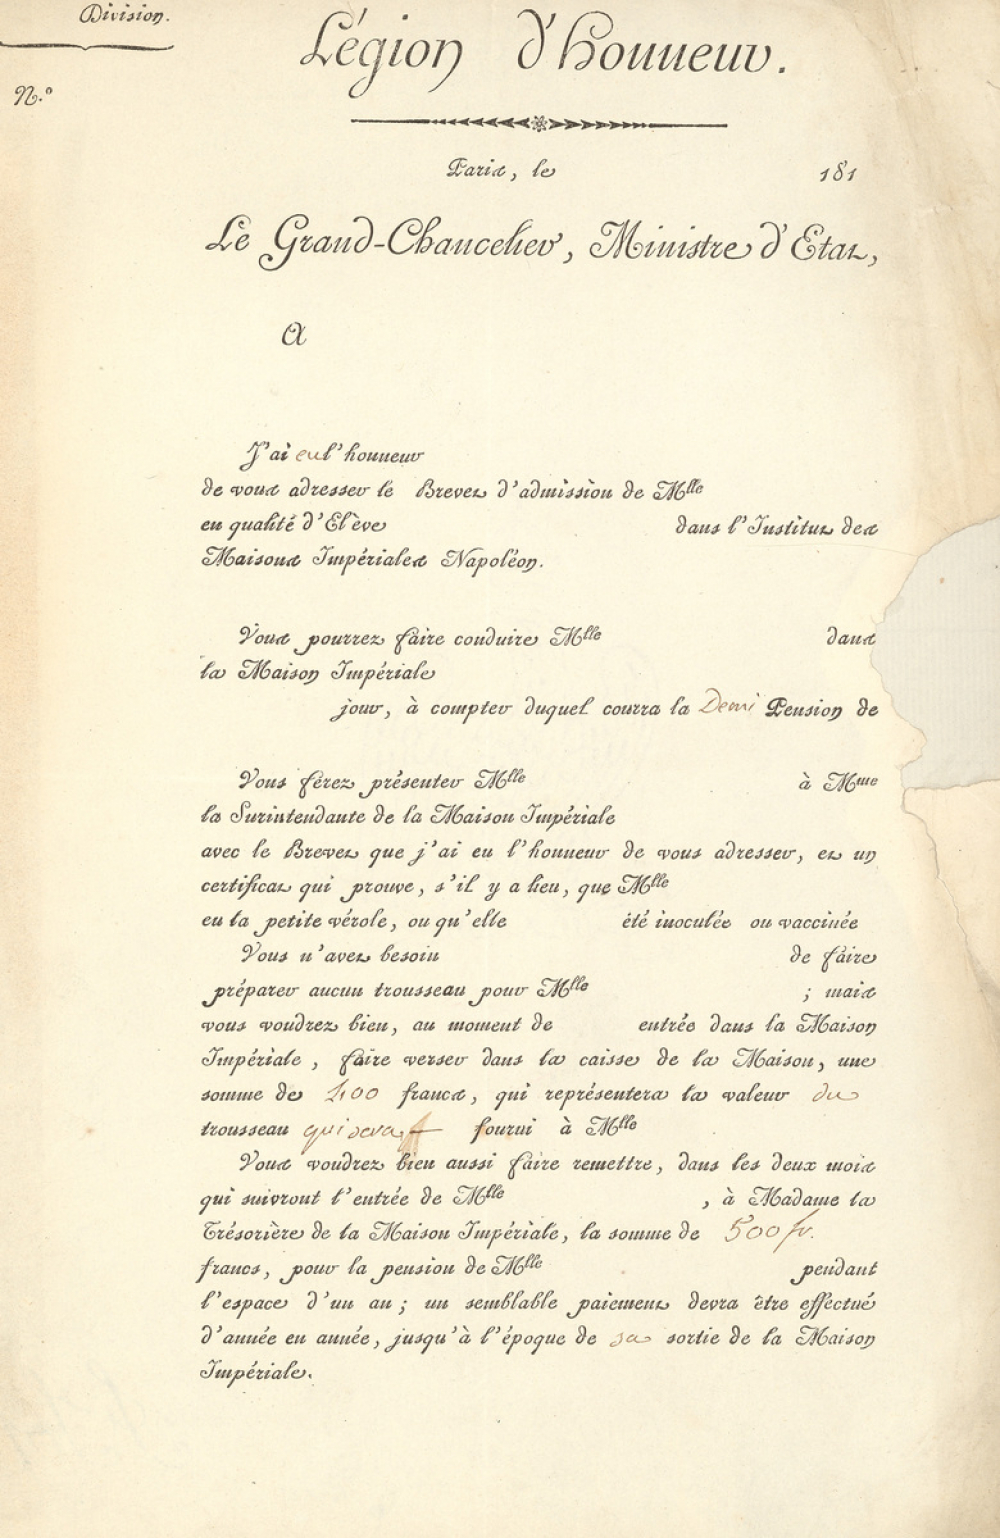 Division.
N.°
Légion d'honneur.
Paris, le 181
Le Grand-Chancelier, Ministre d'Etat,
A
J'ai eu l'honneur
de vous adresser le Brevet d'admission de Mlle
en qualité d'Elève dans l'Institut des
Maisons Impériales Napoléon.
Vous pourrez faire conduire Mlle dans
la Maison Impériale
jour, à compter duquel courra la Demi Pension de
Vous ferez présenter Mlle à Mme
la Surintendante de la Maison Impériale
avec le Brevet que j'ai eu l'honneur de vous adresser, et un
certificat qui prouve, s'il y a lieu, que Mlle
eu la petite vérole, ou qu'elle été inoculée ou vaccinée
Vous n'avez besoin de faire
préparer aucun trousseau pour Mlle ; mais
vous voudrez bien, au moment de entrée dans la Maison
Impériale, faire verser dans la caisse de la Maison, une
somme de 400 francs, qui représentera la valeur du
trousseau qui sera fourni à Mlle
Vous voudrez bien aussi faire remettre, dans les deux mois
qui suivront l'entrée de Mlle , à Madame la
Trésorière de la Maison Impériale, la somme de 500 fr.
francs, pour la pension de Mlle pendant
l'espace d'un an ; un semblable paiement devra être effectué
d'année en année, jusqu'à l'époque de sa sortie de la Maison
Impériale.